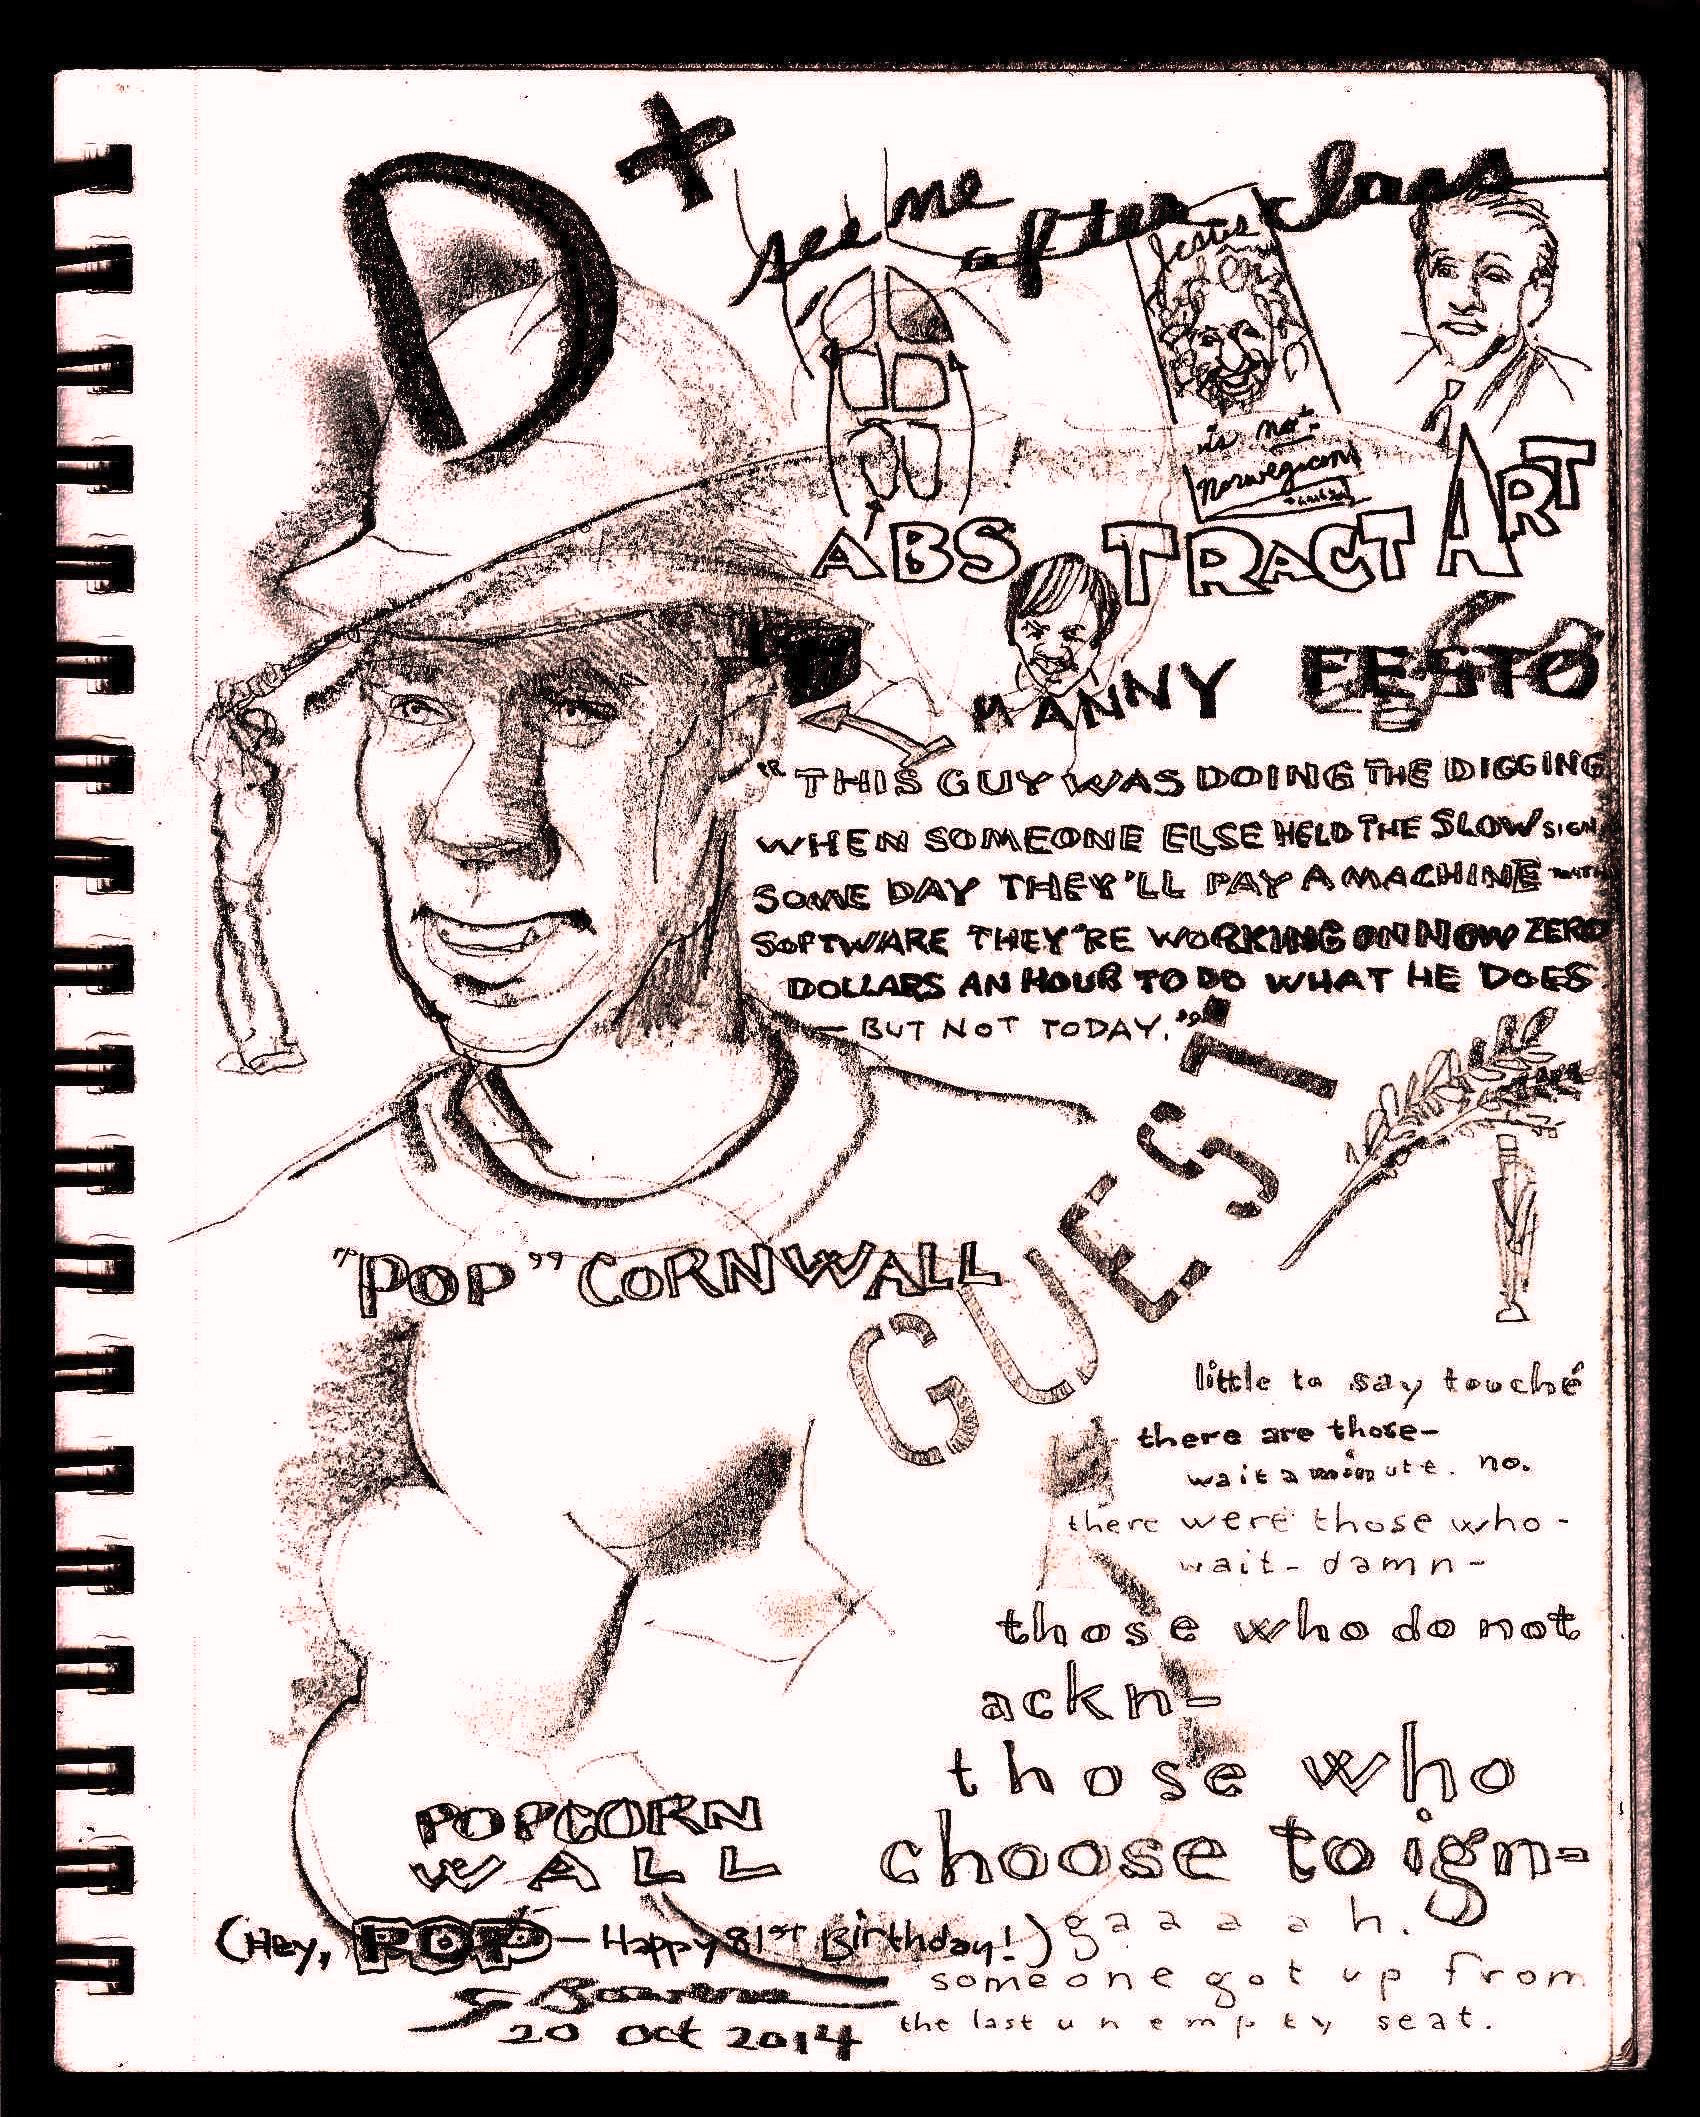 D+
see me after class
Jesus
is not
Norwegian
ABSTRACT ART
MANNY FESTO
"THIS GUY WAS DOING THE DIGGING
WHEN SOMEONE ELSE HELD THE SLOW SIGN
SOME DAY THEY'LL PAY A MACHINE WITH
SOFTWARE THEY'RE WORKING ON NOW ZERO
DOLLARS AN HOUR TO DO WHAT HE DOES
— BUT NOT TODAY."
GUEST
"POP" CORNWALL
little to say touché
there are those-
wait a minute. no.
there were those who-
wait- damn-
those who do not
ackn-
those who
choose to ign-
gaaaah.
someone got up from
the last unempty seat.
POPCORN
WALL
(Hey, POP — Happy 81st Birthday!)
20 Oct 2014